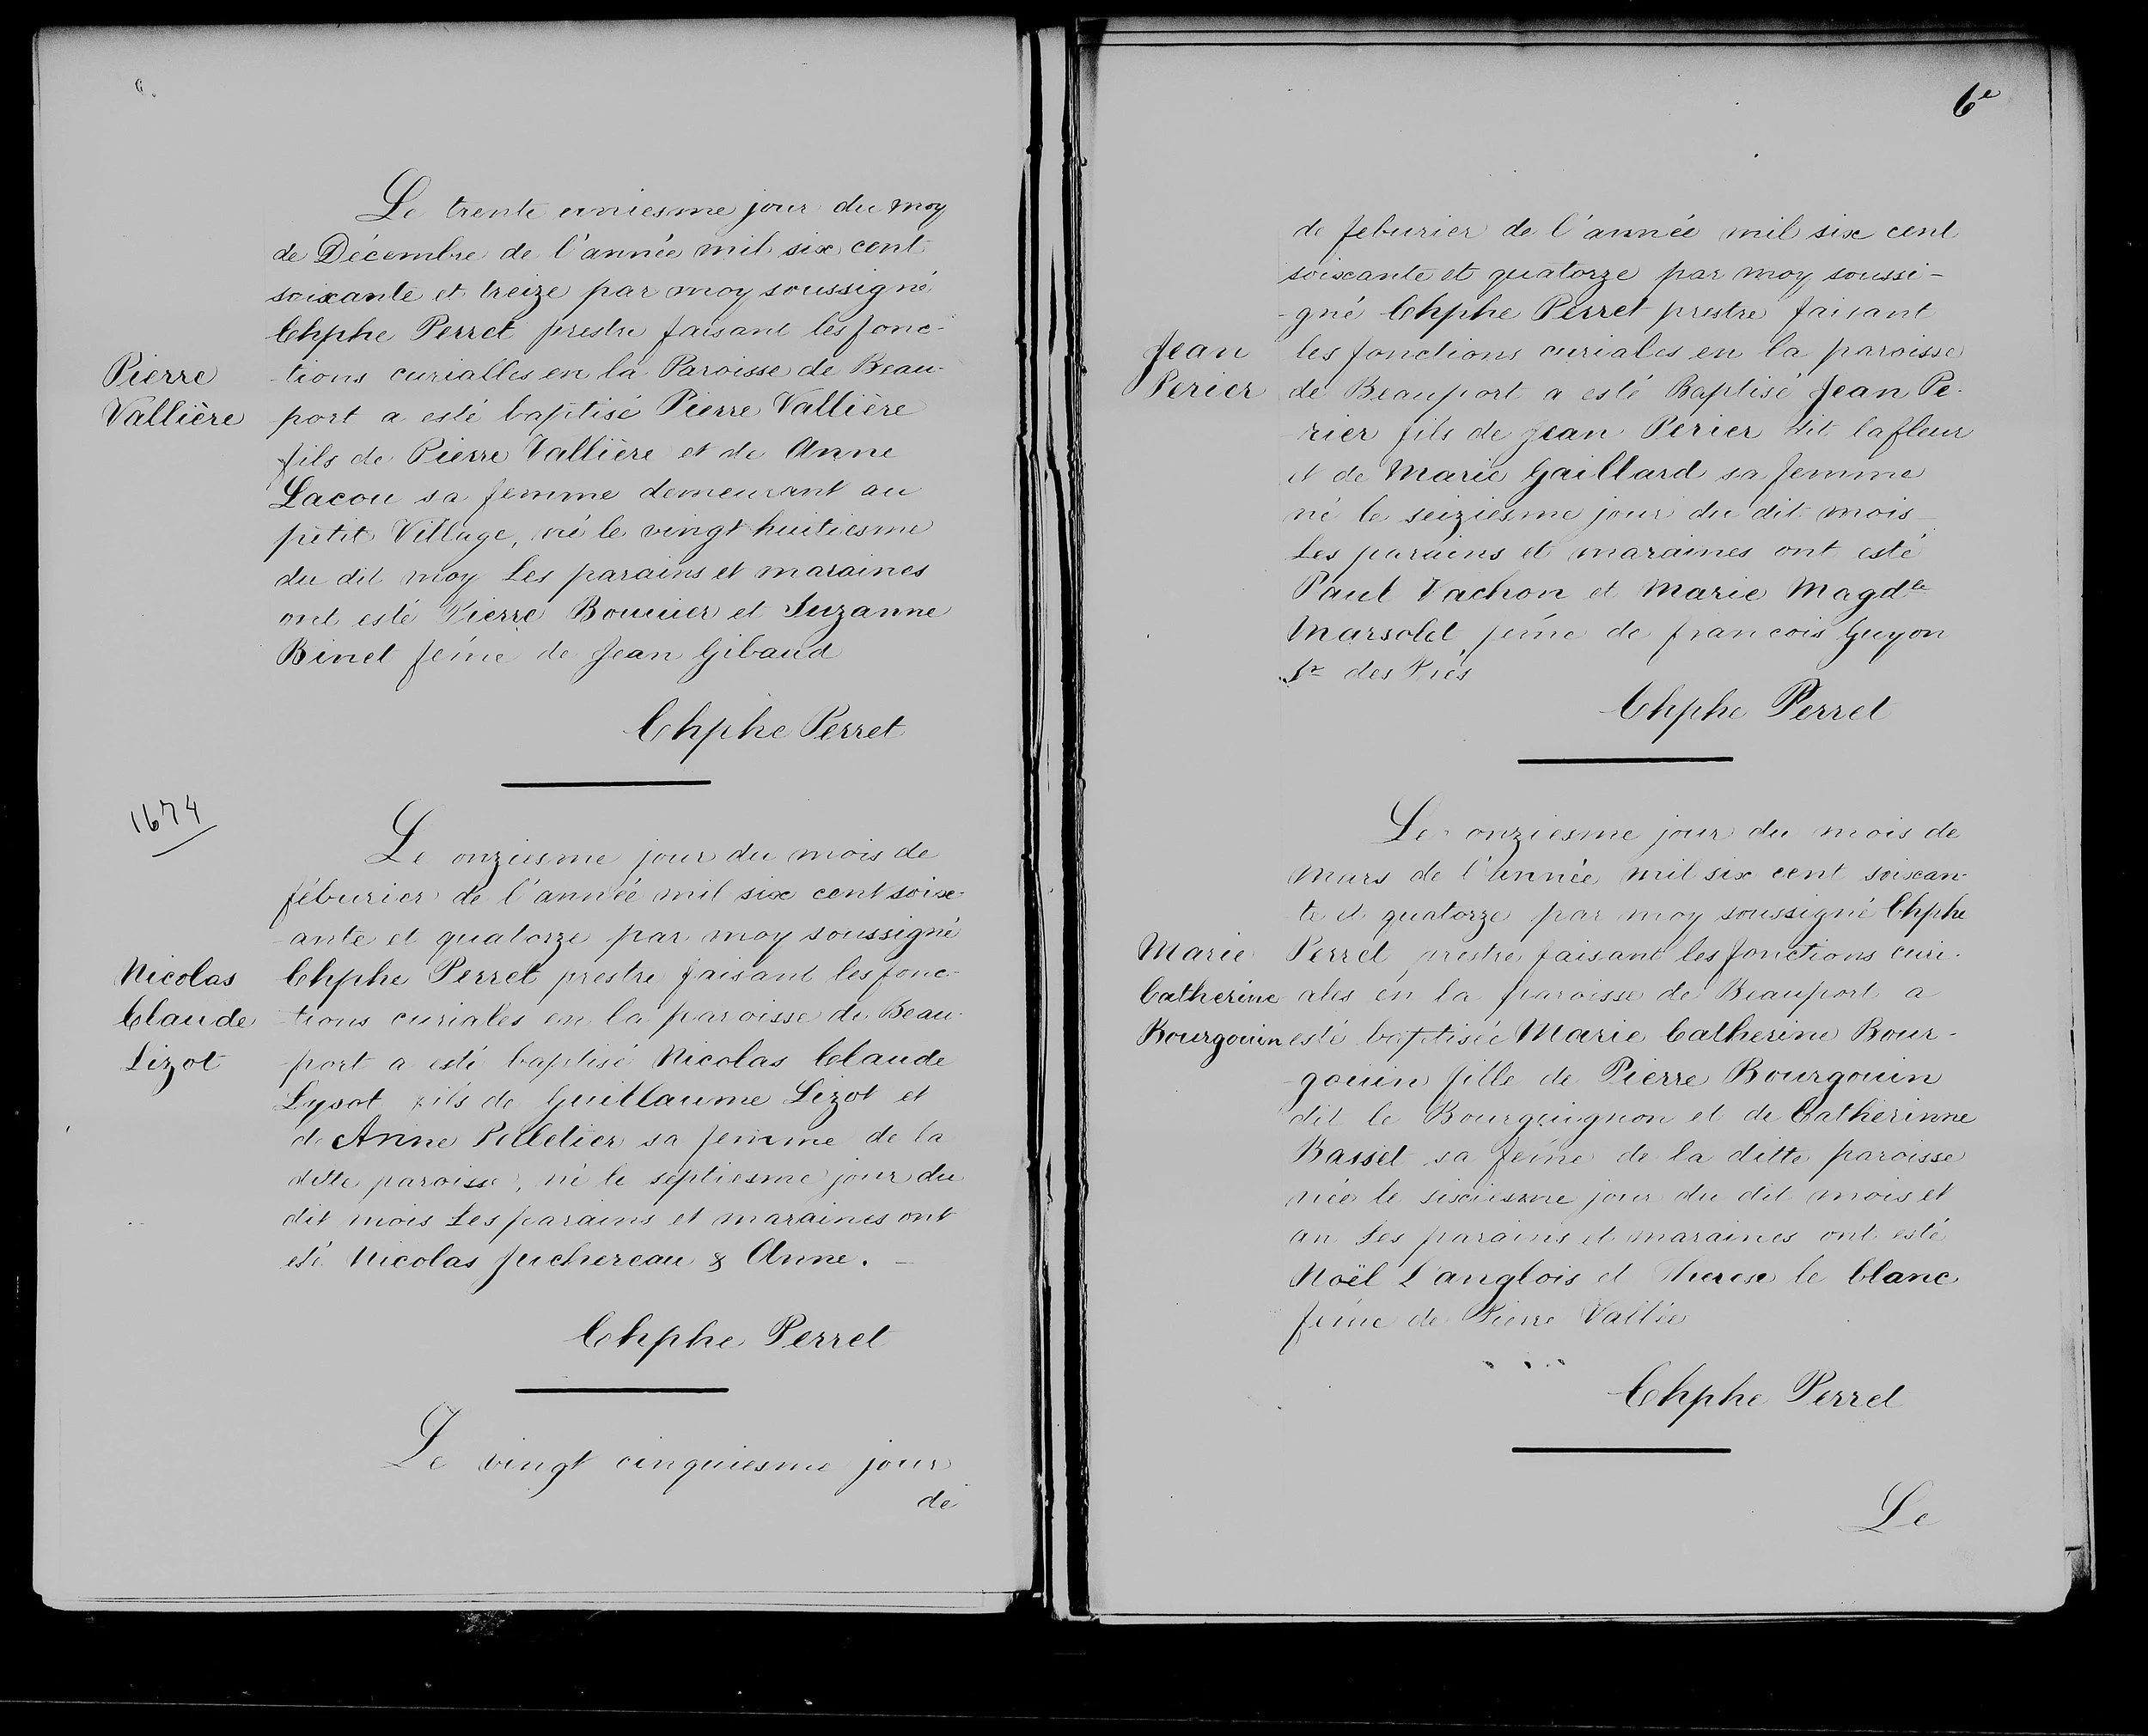 Le trente uniesme jour du moy
de Décembre de l'année mil six cent
soixante et treize par moy soussigné
Chphe Perret prestre faisant les fonc-
Pierre
Vallière
tions curialles en la Paroisse de Beau-
port a esté baptisé Pierre Vallière
fils de Pierre Vallière et de Anne
Lacou sa femme demeurant au
petit Village, né le vingt huitiesme
du dit moy Les parains et maraines
ont esté Pierre et Suzanne
Binet feme de Jean Gibaud
Chphe Perret
1674
Le onziesme jour du mois de
féburier de l'année mil six cent soix-
ante et quatorze par moy soussigné
Nicolas
Claude
Lizot
Chphe Perret prestre faisant les fonc-
tions curiales en la paroisse de Beau-
port a esté baptisé Nicolas Claude
Lysot fils de Guillaume Lizot et
de Anne Pelletier sa femme de la
ditte paroisse, né le septiesme jour du
dit mois Les parains et maraines ont
esté Nicolas Juchereau & Anne. —
Chphe Perret
Le vingt cinquiesme jour
de
6e
de feburier de l'année mil six cent
soixante et quatorze par moy soussi-
-gné Chphe Perret prestre faisant
Jean
Perier
les fonctions curiales en la paroisse
de Beauport a esté Baptisé Jean Pe-
rier fils de Jean Perier dit lafleur
et de Marie Gaillard sa femme
né le seiziesme jour du dit mois
Les parains et maraines ont esté
Paul Vachon et Marie Magdle
Marsolet, feme de francois Guyon
Sr des Prés
Chphe Perret
Le onziesme jour du mois de
Mars de l'année mil six cent soixan-
te et quatorze par moy soussigné Chphe
Marie
Catherine
Bourgouin
Perret prestre faisant les fonctions curi-
ales en la paroisse de Beauport a
esté baptisée Marie Catherine Bour-
-gouin fille de Pierre Bourgouin
dit le Bourguignon et de Catherinne
Basset sa feme de la ditte paroisse
née le sixiesme jour du dit mois et
an Les parains et maraines ont esté
Noël L'anglois et Therese le blanc
feme de Pierre Vallée
Chphe Perret
Le